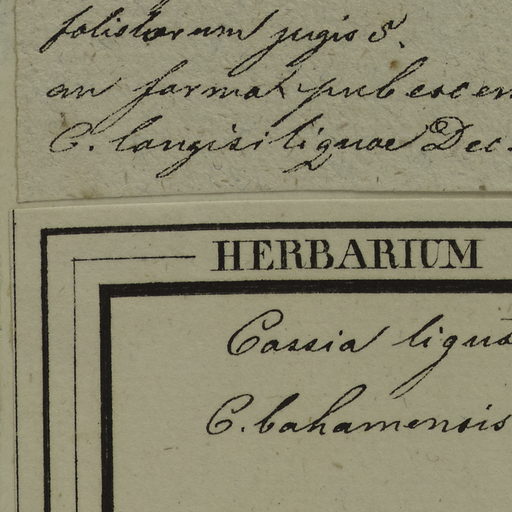 foliolorum jugis 5.
an forma pubescen
C. longisiliquae Dec.
HERBARIUM
Cassia ligus
C. bahamensis